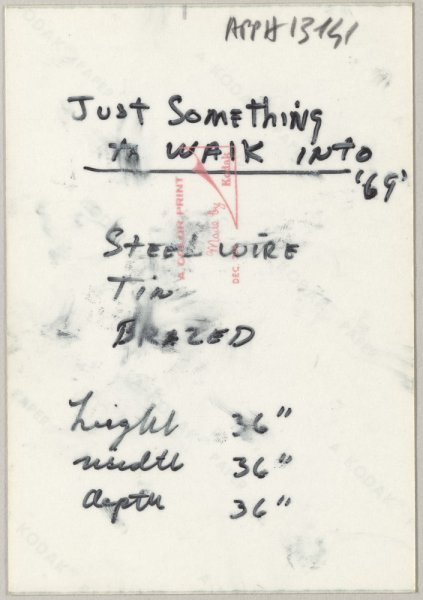 APPH 13141
Just Something
to WALK INTO
'69'
STEEL WIRE
Tin
BRAZED
height 36"
width 36"
depth 36"
A COLOR PRINT
Made by Kodak
DEC